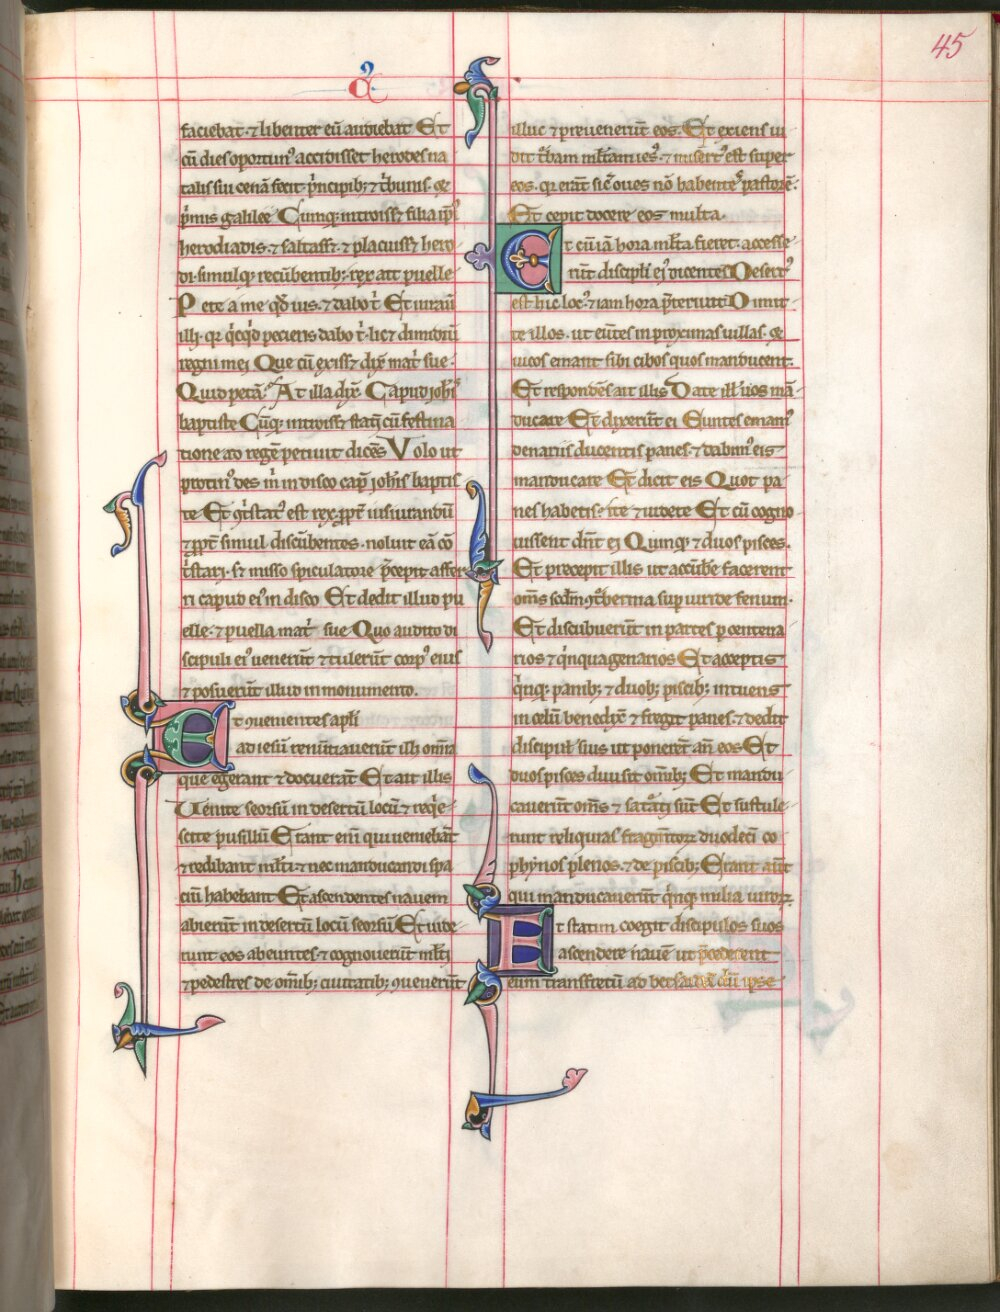 45
faciebat · ⁊ libenter eū audiebat Et
cū dies oportunꝰ accidisset herodes na
talis sui cenā fecit p̄ncipib; ⁊ t̄bunis · ⁊
p̄mis galilee Cumq; introiss; filia ipiꝰ
herodiadis · ⁊ saltass; ⁊ placuiss; hero
di · simulq; recūbentib; rex ait puelle
Pete a me qd̄ uis · ⁊ dabo t̄ Et iurauit
illi · qr q̄cq̄d pecieris dabo t̄ · lic; dimidiū
regni mei Que cū exiss; dix̄ mat̄ sue ·
Quid petā · At illa dix̄ Capud joh̄is
baptiste Cūq; introiss; statī cū festina
tione ad regē petiuit dicēs Volo ut
protinꝰ des m̄ in disco cap̄ joh̄is baptis
te Et ꝯt̄statꝰ est rex · ꝓpt̄ iusiurandū
⁊ ꝓpt̄ simul discūbentes · noluit eā cō
t̄stari · s; misso spiculatore p̄cepit affer
ri capud eiꝰ in disco Et dedit illud pu
elle · ⁊ puella mat̄ sue Quo audito di
scipuli eiꝰ uenerūt ⁊ tulerūt corpꝰ eius
⁊ posuerūt illud in monumento.
Et ꝯuenientes apl̄i
ad iesū renūtiauerūt illi om̄ia
que egerant ⁊ docuerāt Et ait illis
Uenite seorsū in desertū locū ⁊ req̄e
scite pusillū Erant eni qui ueniebāt
⁊ redibant ml̄ti · ⁊ nec manducandi spa
ciū habebant Et ascendentes nauem
abierūt in desertū locū seorsū Et uide
runt eos abeuntes ⁊ cognouerūt ml̄ti
⁊ pedestres de om̄ib; ciuitatib; ꝯcurrerūt
illuc ⁊ preuenerūt eos · Et exiens ui
dit t̄bam ml̄tam ies̄ · ⁊ misertꝰ est super
eos · qr erāt sic̄ oues nō habentes pastorē ·
Et cepit docere eos multa.
Et cū iā hora ml̄ta fieret · accesse
rūt discipl̄i eiꝰ dicentes Desertꝰ
est hic locꝰ · ⁊ iam hora p̄teriuit Dimit
te illos · ut eūtes in proximas uillas · ⁊
uicos emant sibi cibos quos manducent.
Et respondēs ait illis Date ill̄ uos mā
ducare Et dixerūt ei Euntes emamꝰ
denariis ducentis panes · ⁊ dabimꝰ eis
manducare Et dicit eis Quot pa
nes habetis · ite ⁊ uidete Et cū cogno
uissent dn̄t ei Quinq; ⁊ duos pisces.
Et precepit illis ut accūbe facerent
om̄s scd̄m ꝯtbernia sup uiride fenum.
Et discubuerūt in partes p centena
rios ⁊ q̄nquagenarios Et acceptis
q̄nq; panib; ⁊ duob; piscib; intuens
in celū benedix̄ ⁊ fregit panes · ⁊ dedit
discipul̄ suis ut ponerēt an̄ eos Et
duos pisces diuisit om̄ib; Et mandu
cauerūt om̄s ⁊ sat̄ati sūt Et sustule
runt reliquias fragm̄toꝝ duodeci co
phynos plenos · ⁊ de piscib; Erant aūt
qui manducauerūt q̄nq; milia uiroꝝ
Et statim coegit discipulos suos
ascendere nauē ut p̄cederent
eum transfretū ad bethsaidā dū ipse